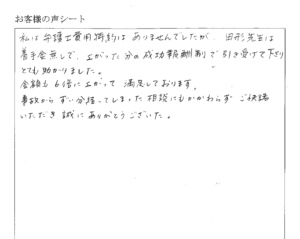 お客様の声シート
私は弁護士費用特約はありませんでしたが、田形先生は
着手金無しで、上がった分の成功報酬制で引き受けて下さり
とても助かりました。
金額も6倍に上がって満足しております。
事故からずい分経ってしまった相談にもかかわらずご快諾
いただき誠にありがとうございた。